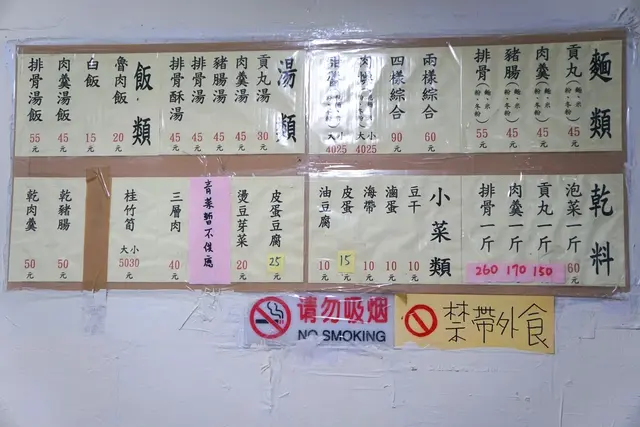 麵類
貢丸(麵、米粉、冬粉) 45元
肉羹(麵、米粉、冬粉) 45元
豬腸(麵、米粉、冬粉) 45元
排骨(麵、米粉、冬粉) 55元
兩樣綜合 60元
四樣綜合 90元
大 小
4025
大 小
4025
湯類
貢丸湯 30元
肉羹湯 45元
豬腸湯 45元
排骨湯 45元
排骨酥湯 45元
飯類
魯肉飯 20元
白飯 15元
肉羹湯飯 45元
排骨湯飯 55元
乾料
泡菜一斤 60元
貢丸一斤 150
肉羹一斤 170
排骨一斤 260
小菜類
豆干 10元
滷蛋 10元
海帶 10元
皮蛋 15元
油豆腐 10元
皮蛋豆腐 25元
燙豆芽菜 20元
青菜暫不供應
三層肉 40元
桂竹筍 大小 5030元
乾豬腸 50元
乾肉羹 50元
请勿吸烟
NO SMOKING
禁帶外食